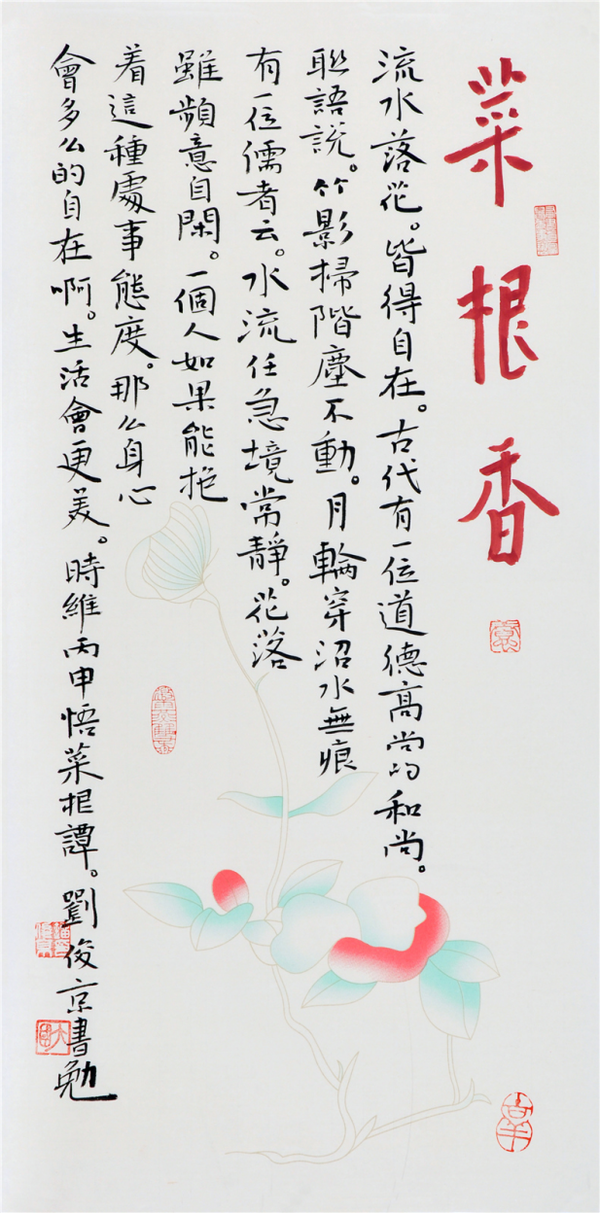 菜根香
流水落花。皆得自在。古代有一位道德高尚的和尚。
联語説。竹影掃階塵不動。月輪穿沼水無痕
有一位儒者云。水流任急境常靜。花落
雖頻意自閑。一個人如果能抱
着這種處事態度。那么身心
會多么的自在啊。生活會更美。時維丙申悟菜根譚。劉俊京書勉